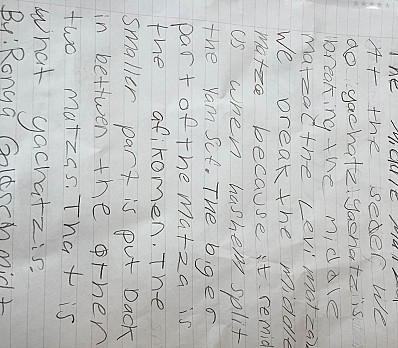 the middle matza
At the seder we
do yachatz.yachatz is
breaking the middle
matza(the Levi matza)
We break the middle
matza because it remid
us when hashem split
the yam suf. The biger
part of the matza is
the afikomen. The
smaller part is put back
in between the other
two matzas. That is
what yachatz is.
By: Ronya Goldschmidt